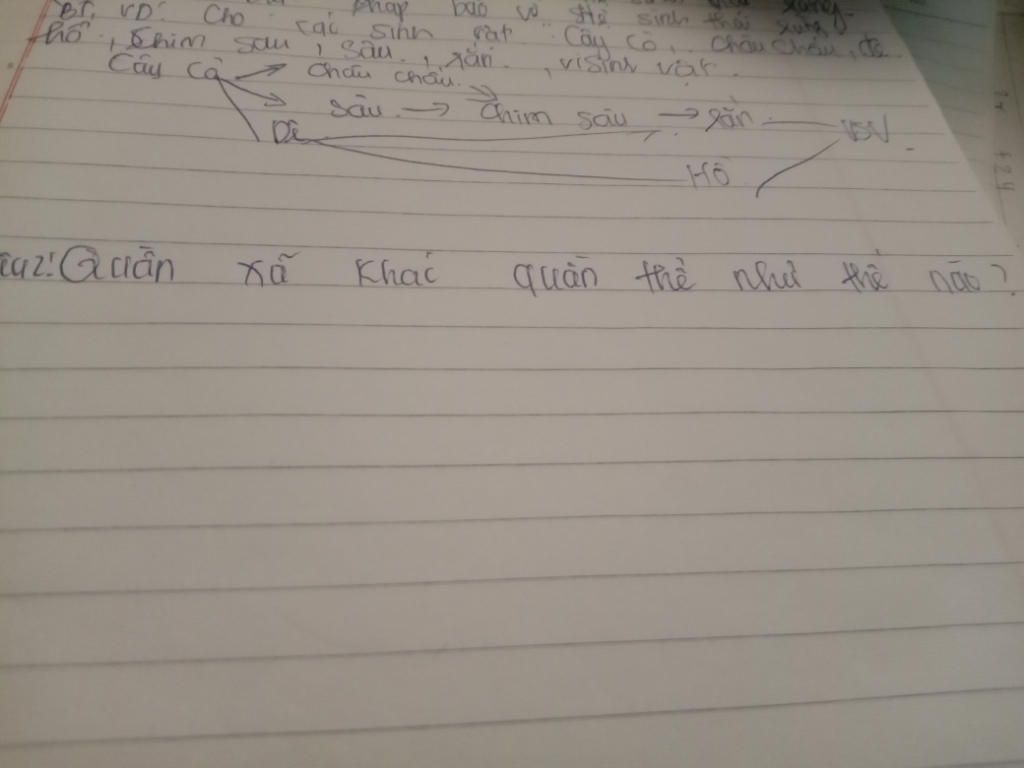 BT. VD: Cho pháp bảo vệ hệ sinh thái
các sinh vật: Cây cỏ, châu chấu, dê
hổ, chim sâu, sâu, rắn, vi sinh vật.
Cây cỏ → châu chấu
sâu → chim sâu → rắn VSV
Dê
Hổ
Câu2: Quần xã khác quần thể như thế nào?